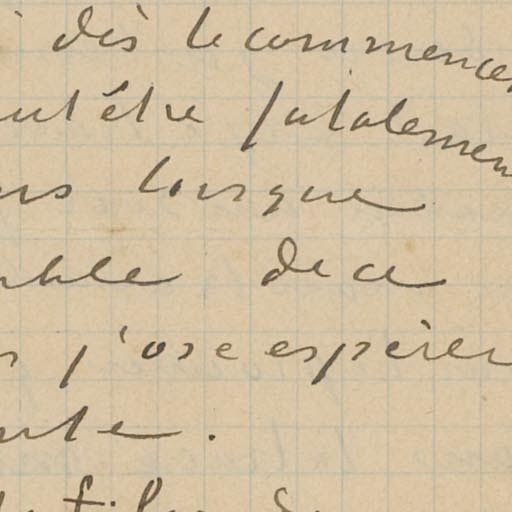 dès le commence
ut être fatalemen
rs lorsque
able de ce
s j'ose espérer
ute.